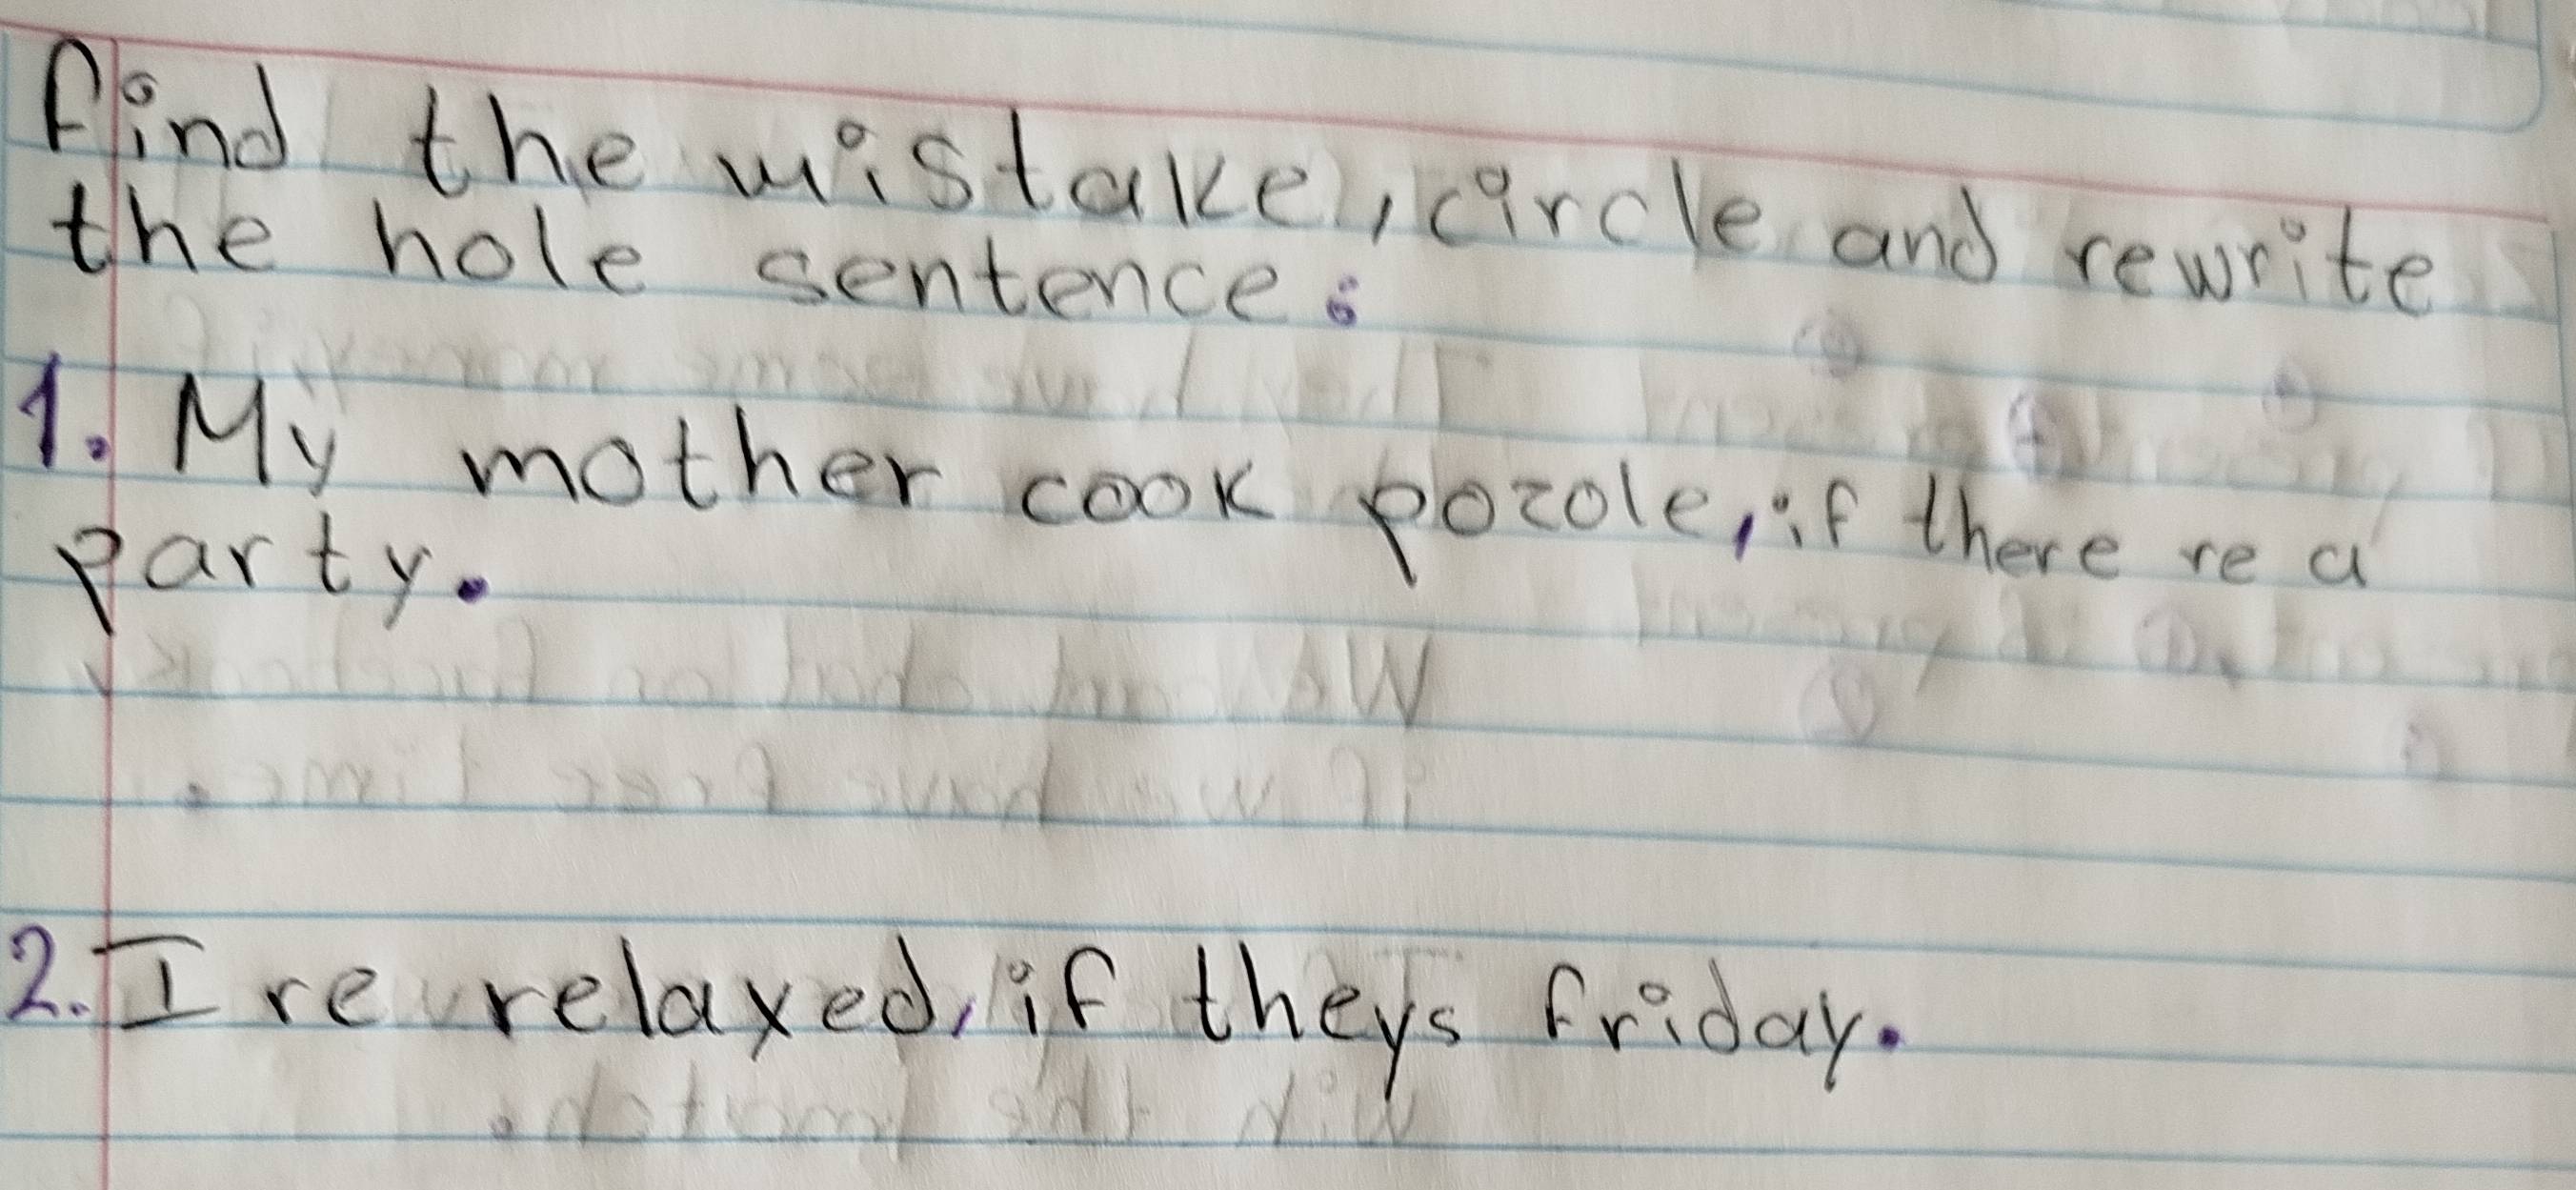 find the mistake, circle and rewrite
the hole sentence:
1. My mother cook pozole, if there re a
party.
2. I re relaxed, if theys friday.